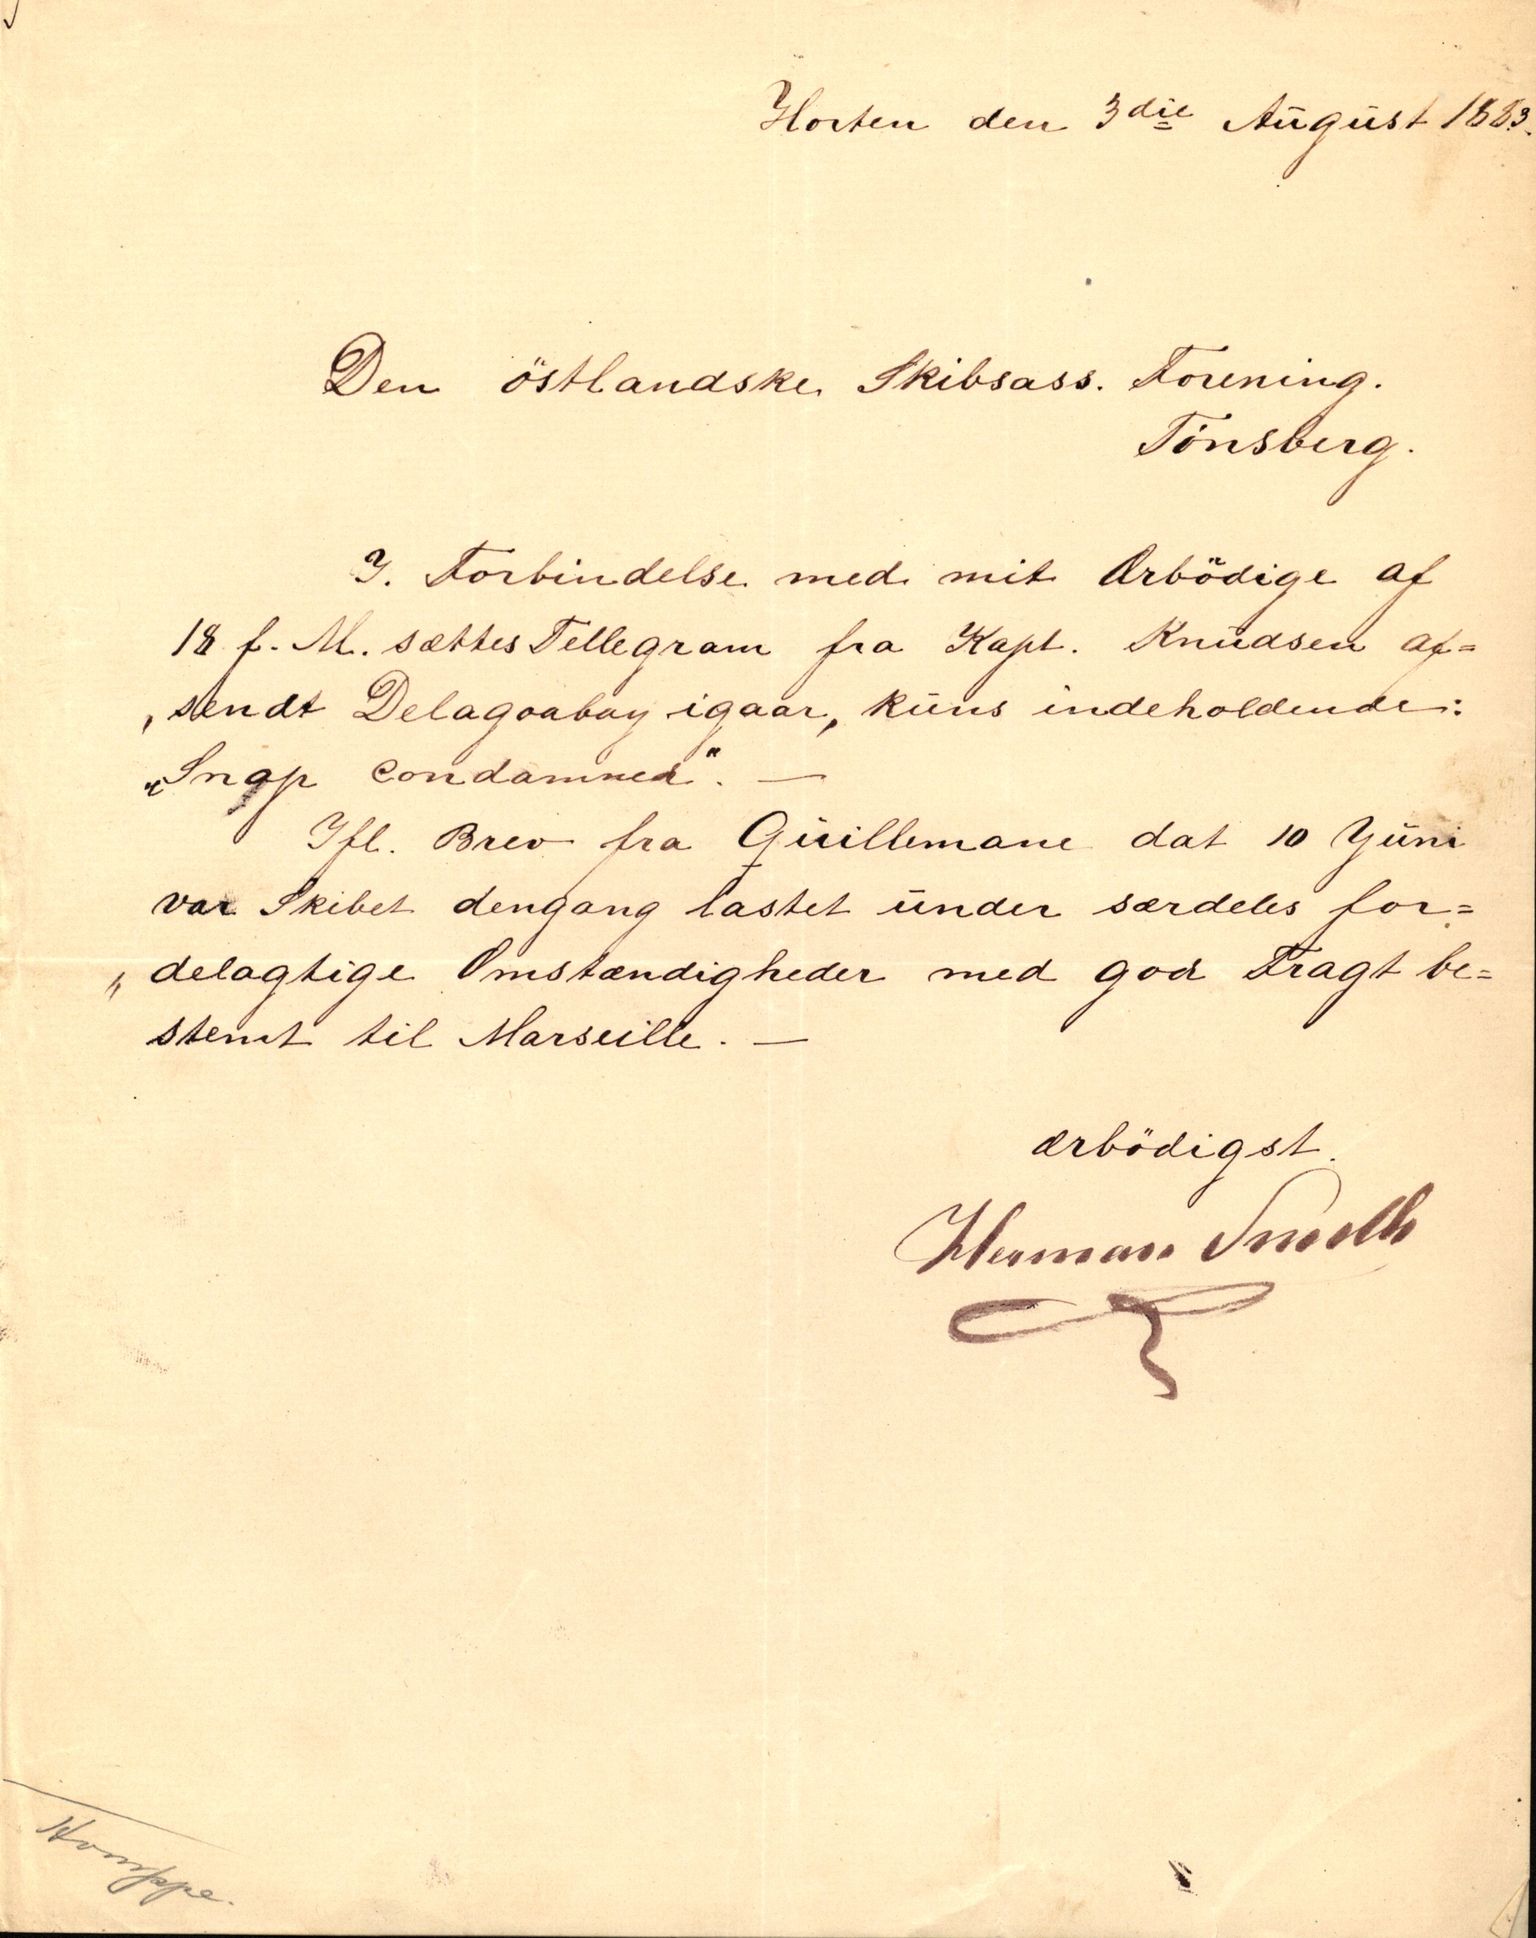 Horten den 3die August 1883.
Den östlandske Skibsass. Forening.
Tönsberg.
I. Forbindelse med mit Ærbödige af
18 f. M. sættes Tellegram fra Kapt. Knudsen af=
„sendt Delagoabay igaar, kuns indeholdende:
„Snap condamned". —
Ifl. Brev fra Quillemane dat 10 Juni
var Skibet dengang lastet under særdeles for=
„delagtige Omstændigheder med god Fragt be=
stemt til Marseille. —
ærbödigst.
Herman Smith